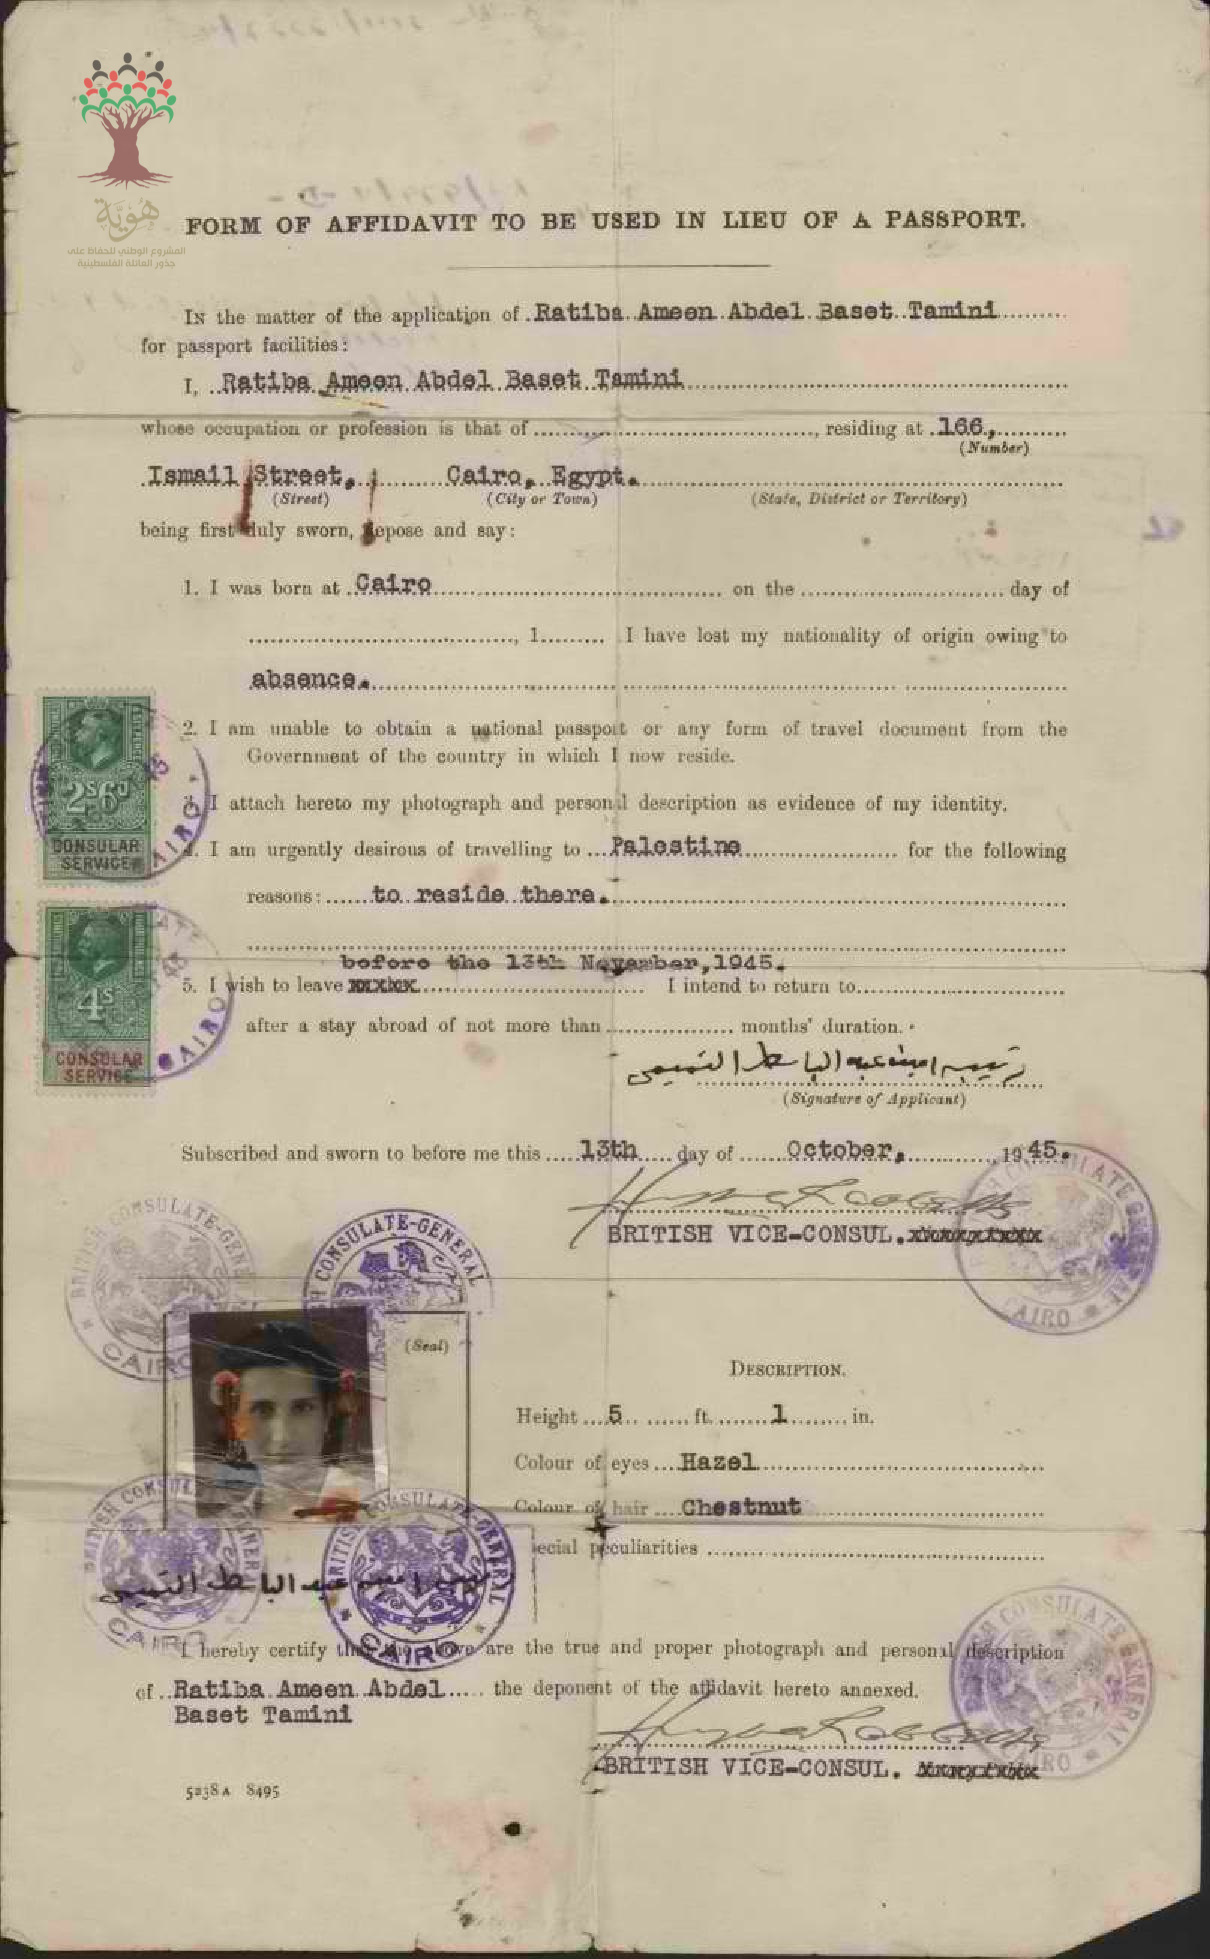 هُوِيَّة
المشروع الوطني للحفاظ على
جذور العائلة الفلسطينية
FORM OF AFFIDAVIT TO BE USED IN LIEU OF A PASSPORT.
IN the matter of the application of Ratiba Ameen Abdel Baset Tamini
for passport facilities:
I, Ratiba Ameen Abdel Baset Tamini
whose occupation or profession is that of , residing at 166,
(Number)
Ismail Street, Cairo, Egypt.
(Street) (City or Town) (State, District or Territory)
being first duly sworn, depose and say:
1. I was born at Cairo on the day of
, 1 I have lost my nationality of origin owing to
absence.
2. I am unable to obtain a national passport or any form of travel document from the
Government of the country in which I now reside.
I attach hereto my photograph and personal description as evidence of my identity.
4. I am urgently desirous of travelling to Palestine for the following
reasons: to reside there.
before the 13th November, 1945.
5. I wish to leave I intend to return to
after a stay abroad of not more than months' duration.
رتيبه امين عبد الباسط التميمي
(Signature of Applicant)
2s6d
CONSULAR
SERVICE
CAIRO
4s
CONSULAR
SERVICE
CAIRO
Subscribed and sworn to before me this 13th day of October, 1945.
BRITISH VICE-CONSUL.
BRITISH CONSULATE-GENERAL
CAIRO
BRITISH CONSULATE-GENERAL
CAIRO
BRITISH CONSULATE-GENERAL
(Seal)
DESCRIPTION.
Height 5 ft. 1 in.
Colour of eyes Hazel
Colour of hair Chestnut
ecial peculiarities
BRITISH CONSULATE-GENERAL
CAIRO
BRITISH CONSULATE-GENERAL
CAIRO
امين عبد الباسط التميمي
I hereby certify that the above are the true and proper photograph and personal description
of Ratiba Ameen Abdel the deponent of the affidavit hereto annexed.
Baset Tamini
BRITISH CONSULATE-GENERAL
CAIRO
BRITISH VICE-CONSUL.
5238A 8495